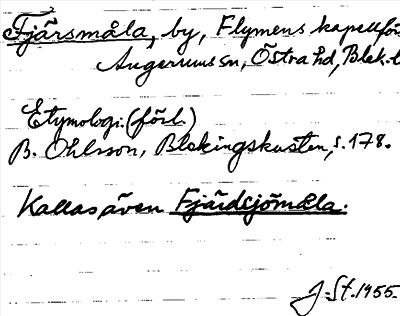 Fjärsmåla, by, Flymens kapellförs
Augerums sn, Östra hd, Blek. l
Etymologi. (förl.)
B. Ohlsson, Blekingskusten, s. 178.
Kallas även Fjärdsjömåla.
J. St. 1955.